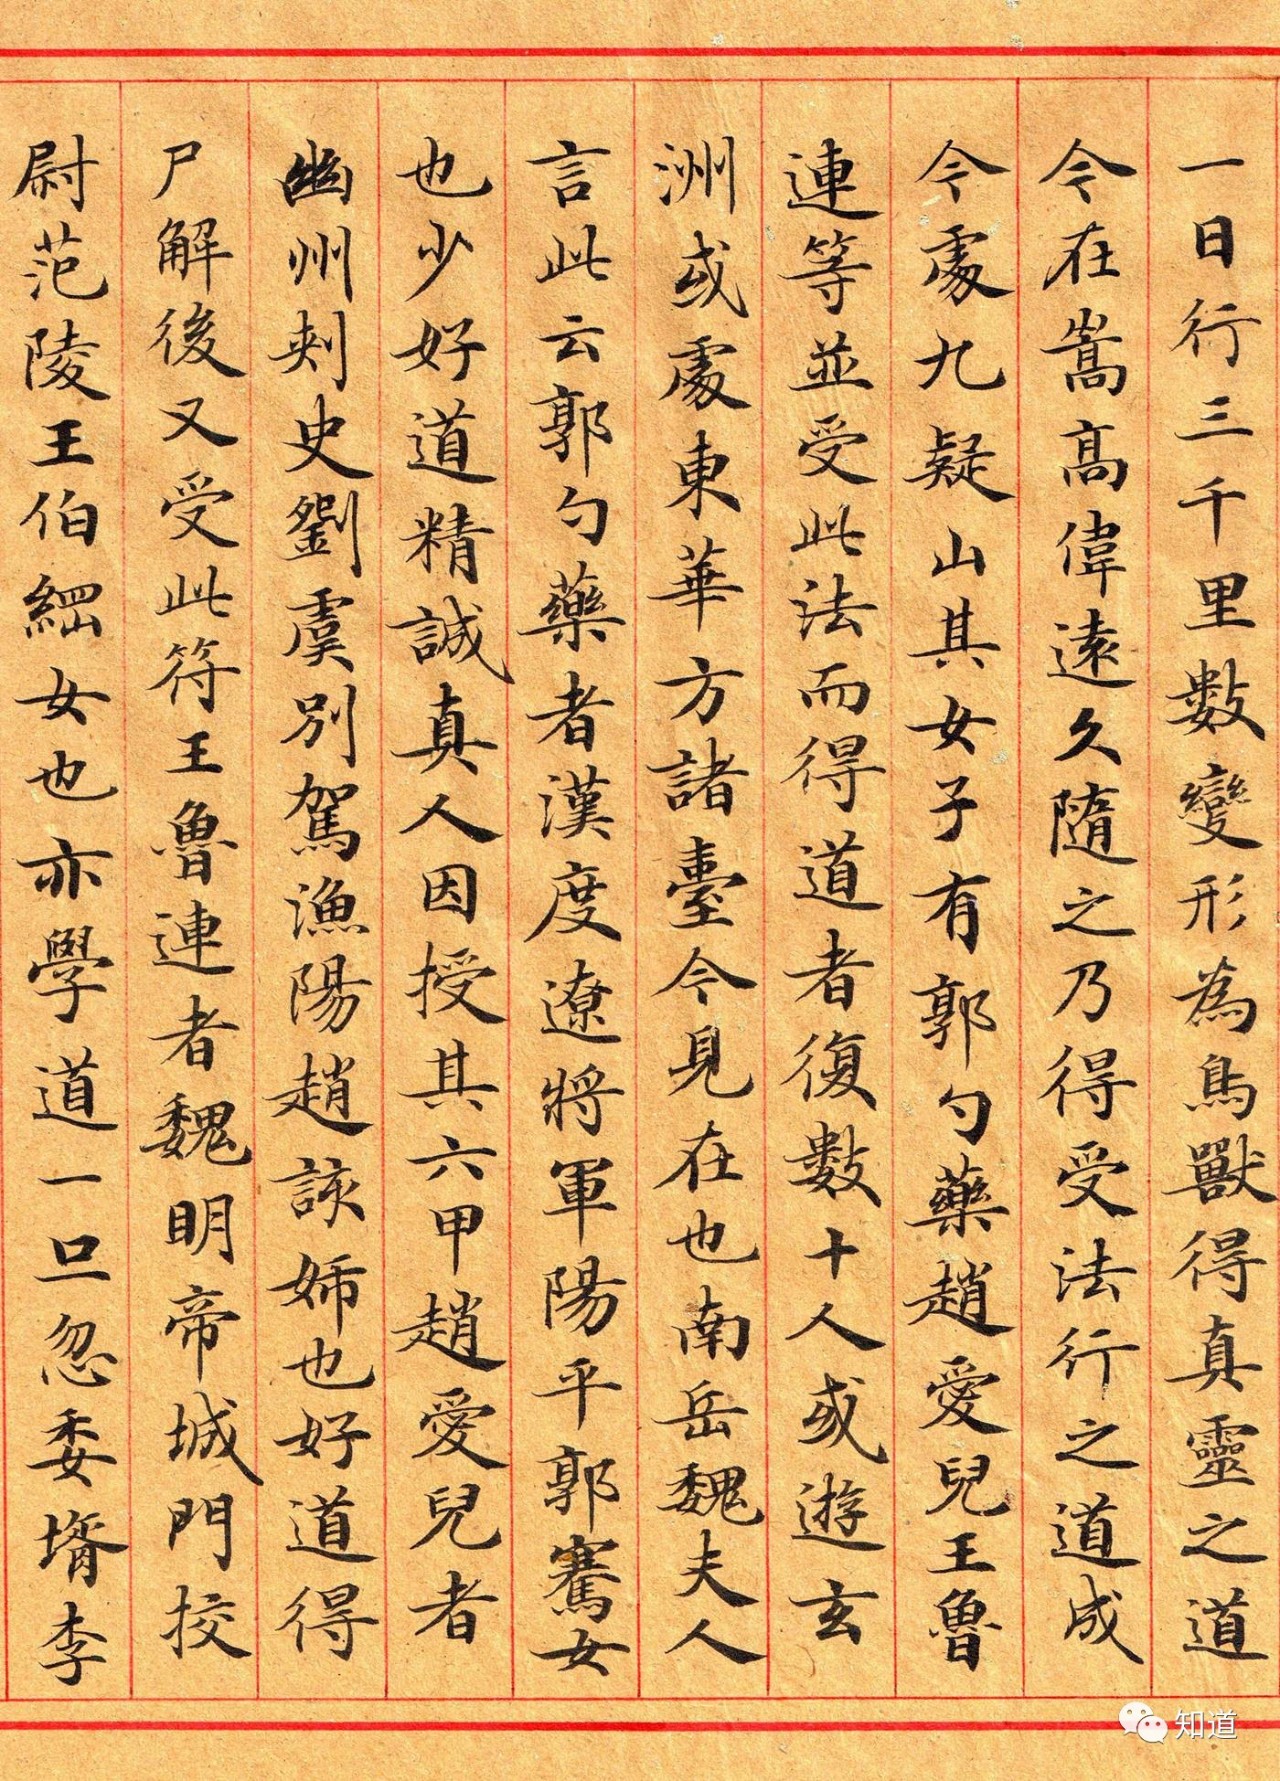 一日行三千里數變形為鳥獸得真靈之道
今在嵩高偉遠久隨之乃得受法行之道成
今處九疑山其女子有郭勺藥趙愛兒王魯
連等並受此法而得道者復數十人或遊玄
洲或處東華方諸臺今見在也南岳魏夫人
言此云郭勺藥者漢度遼將軍陽平郭騫女
也少好道精誠真人因授其六甲趙愛兒者
幽州刾史劉虞別駕漁陽趙該姉也好道得
尸解後又受此符王魯連者魏明帝城門挍
尉范陵王伯綱女也亦學道一旦忽委壻李
知道